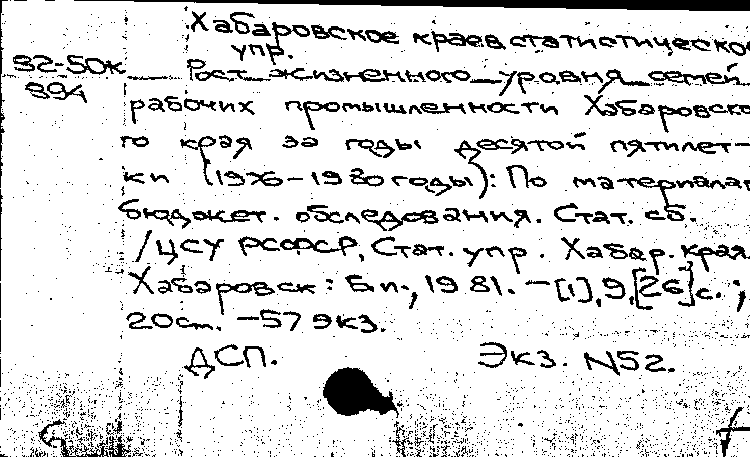 Хабаровское краев статистическое
упр.
82-50к Рост жизненного уровня семей
894
рабочих промышленности Хабаровско
го края за годы десятой пятилет-
ки (1976-1980 годы): По материалам
бюджет. обследования. Стат. сб.
/ЦСУ РСФСР, Стат. упр. Хабар. края.
Хабаровск: Б.и., 1981. -[1], 9, [26] с.;
20см. -57 экз.
ДСП. Экз. N52.